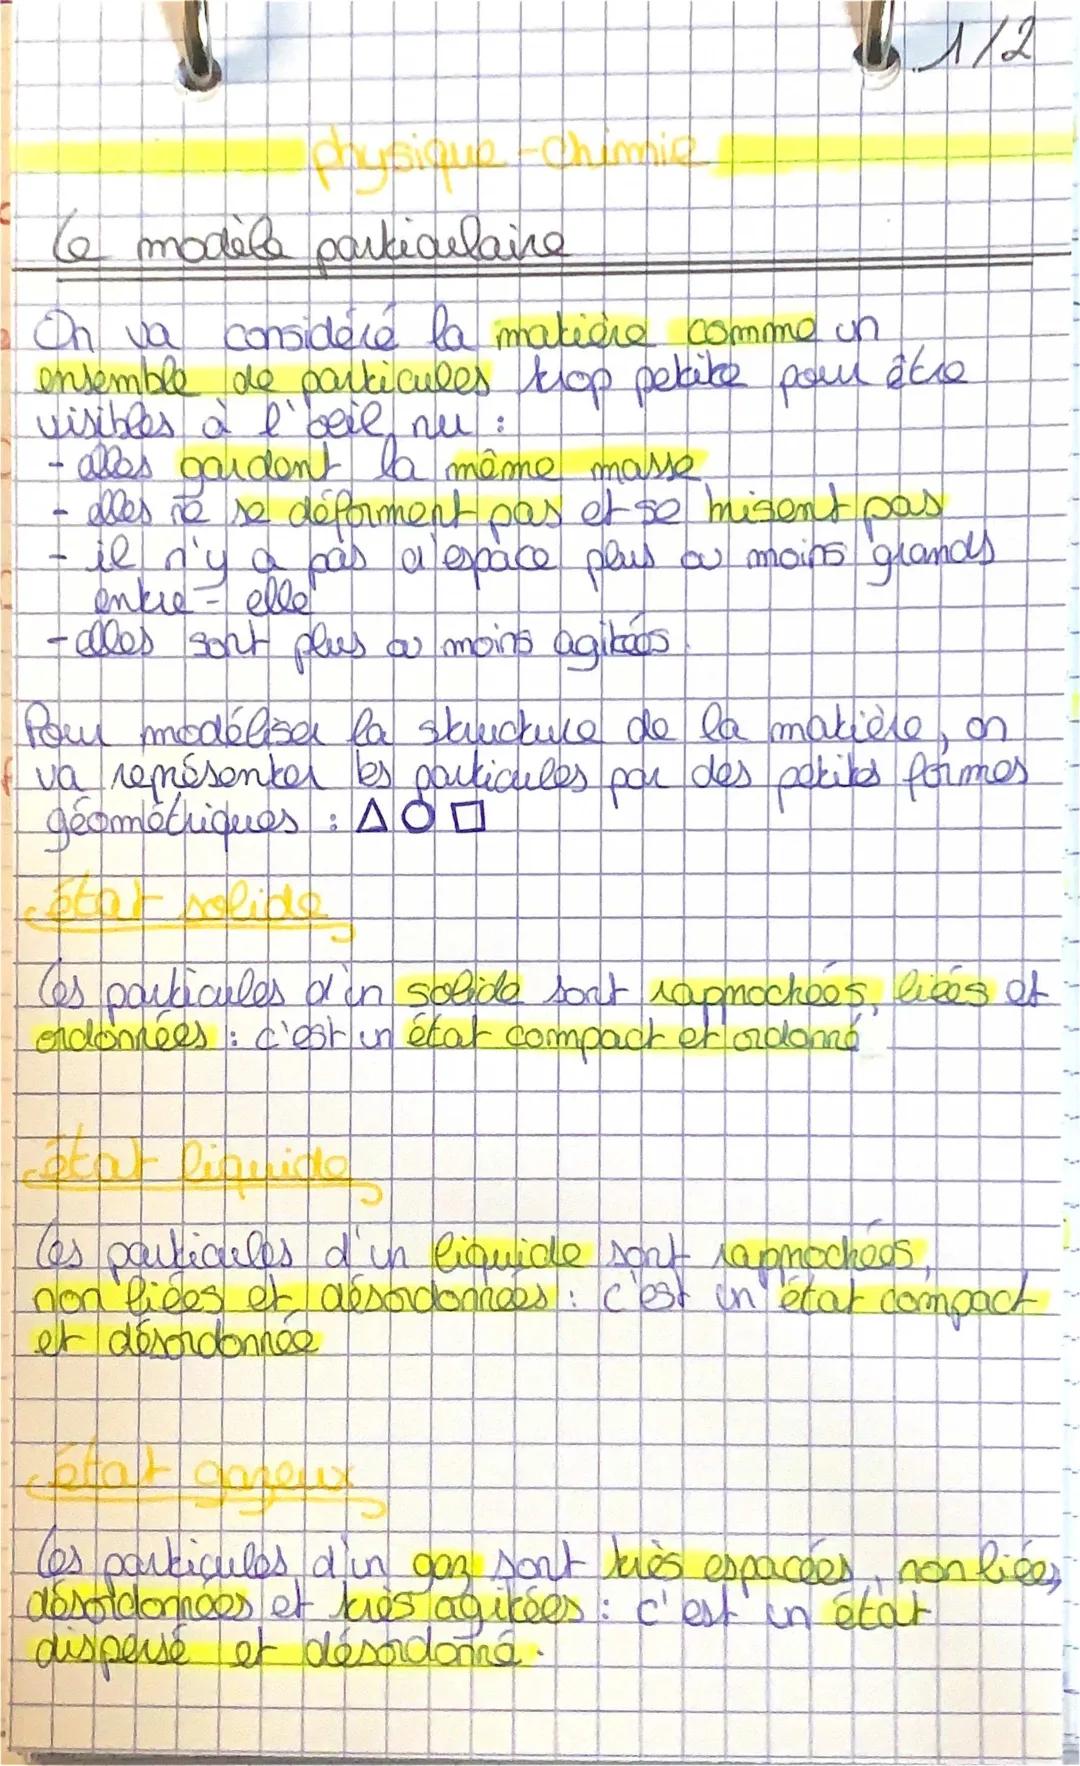 1/2
physique-chimie
Le modèle particulaire
On va considéré la matière comme un
ensemble de particules trop petite pour être
visibles à l'oeil nu :
- elles gardent la même masse
- elles ne se déforment pas et se brisent pas
- il n'y a pas d'espace plus ou moins grands
entre-elle
- elles sont plus ou moins agitées
Pour modéliser la structure de la matière, on
va représenter les particules par des petites formes
géométriques : △ ○ □
état solide
Les particules d'un solide sont rapprochées, liées et
ordonnées : c'est un état compact et ordonné
état liquide
Les particules d'un liquide sont rapprochées,
non liées et désordonnées : c'est un état compact
et désordonnée
état gazeux
Les particules d'un gaz sont très espacées, non liées,
désordonnées et très agitées : c'est un état
dispersé et désordonné.